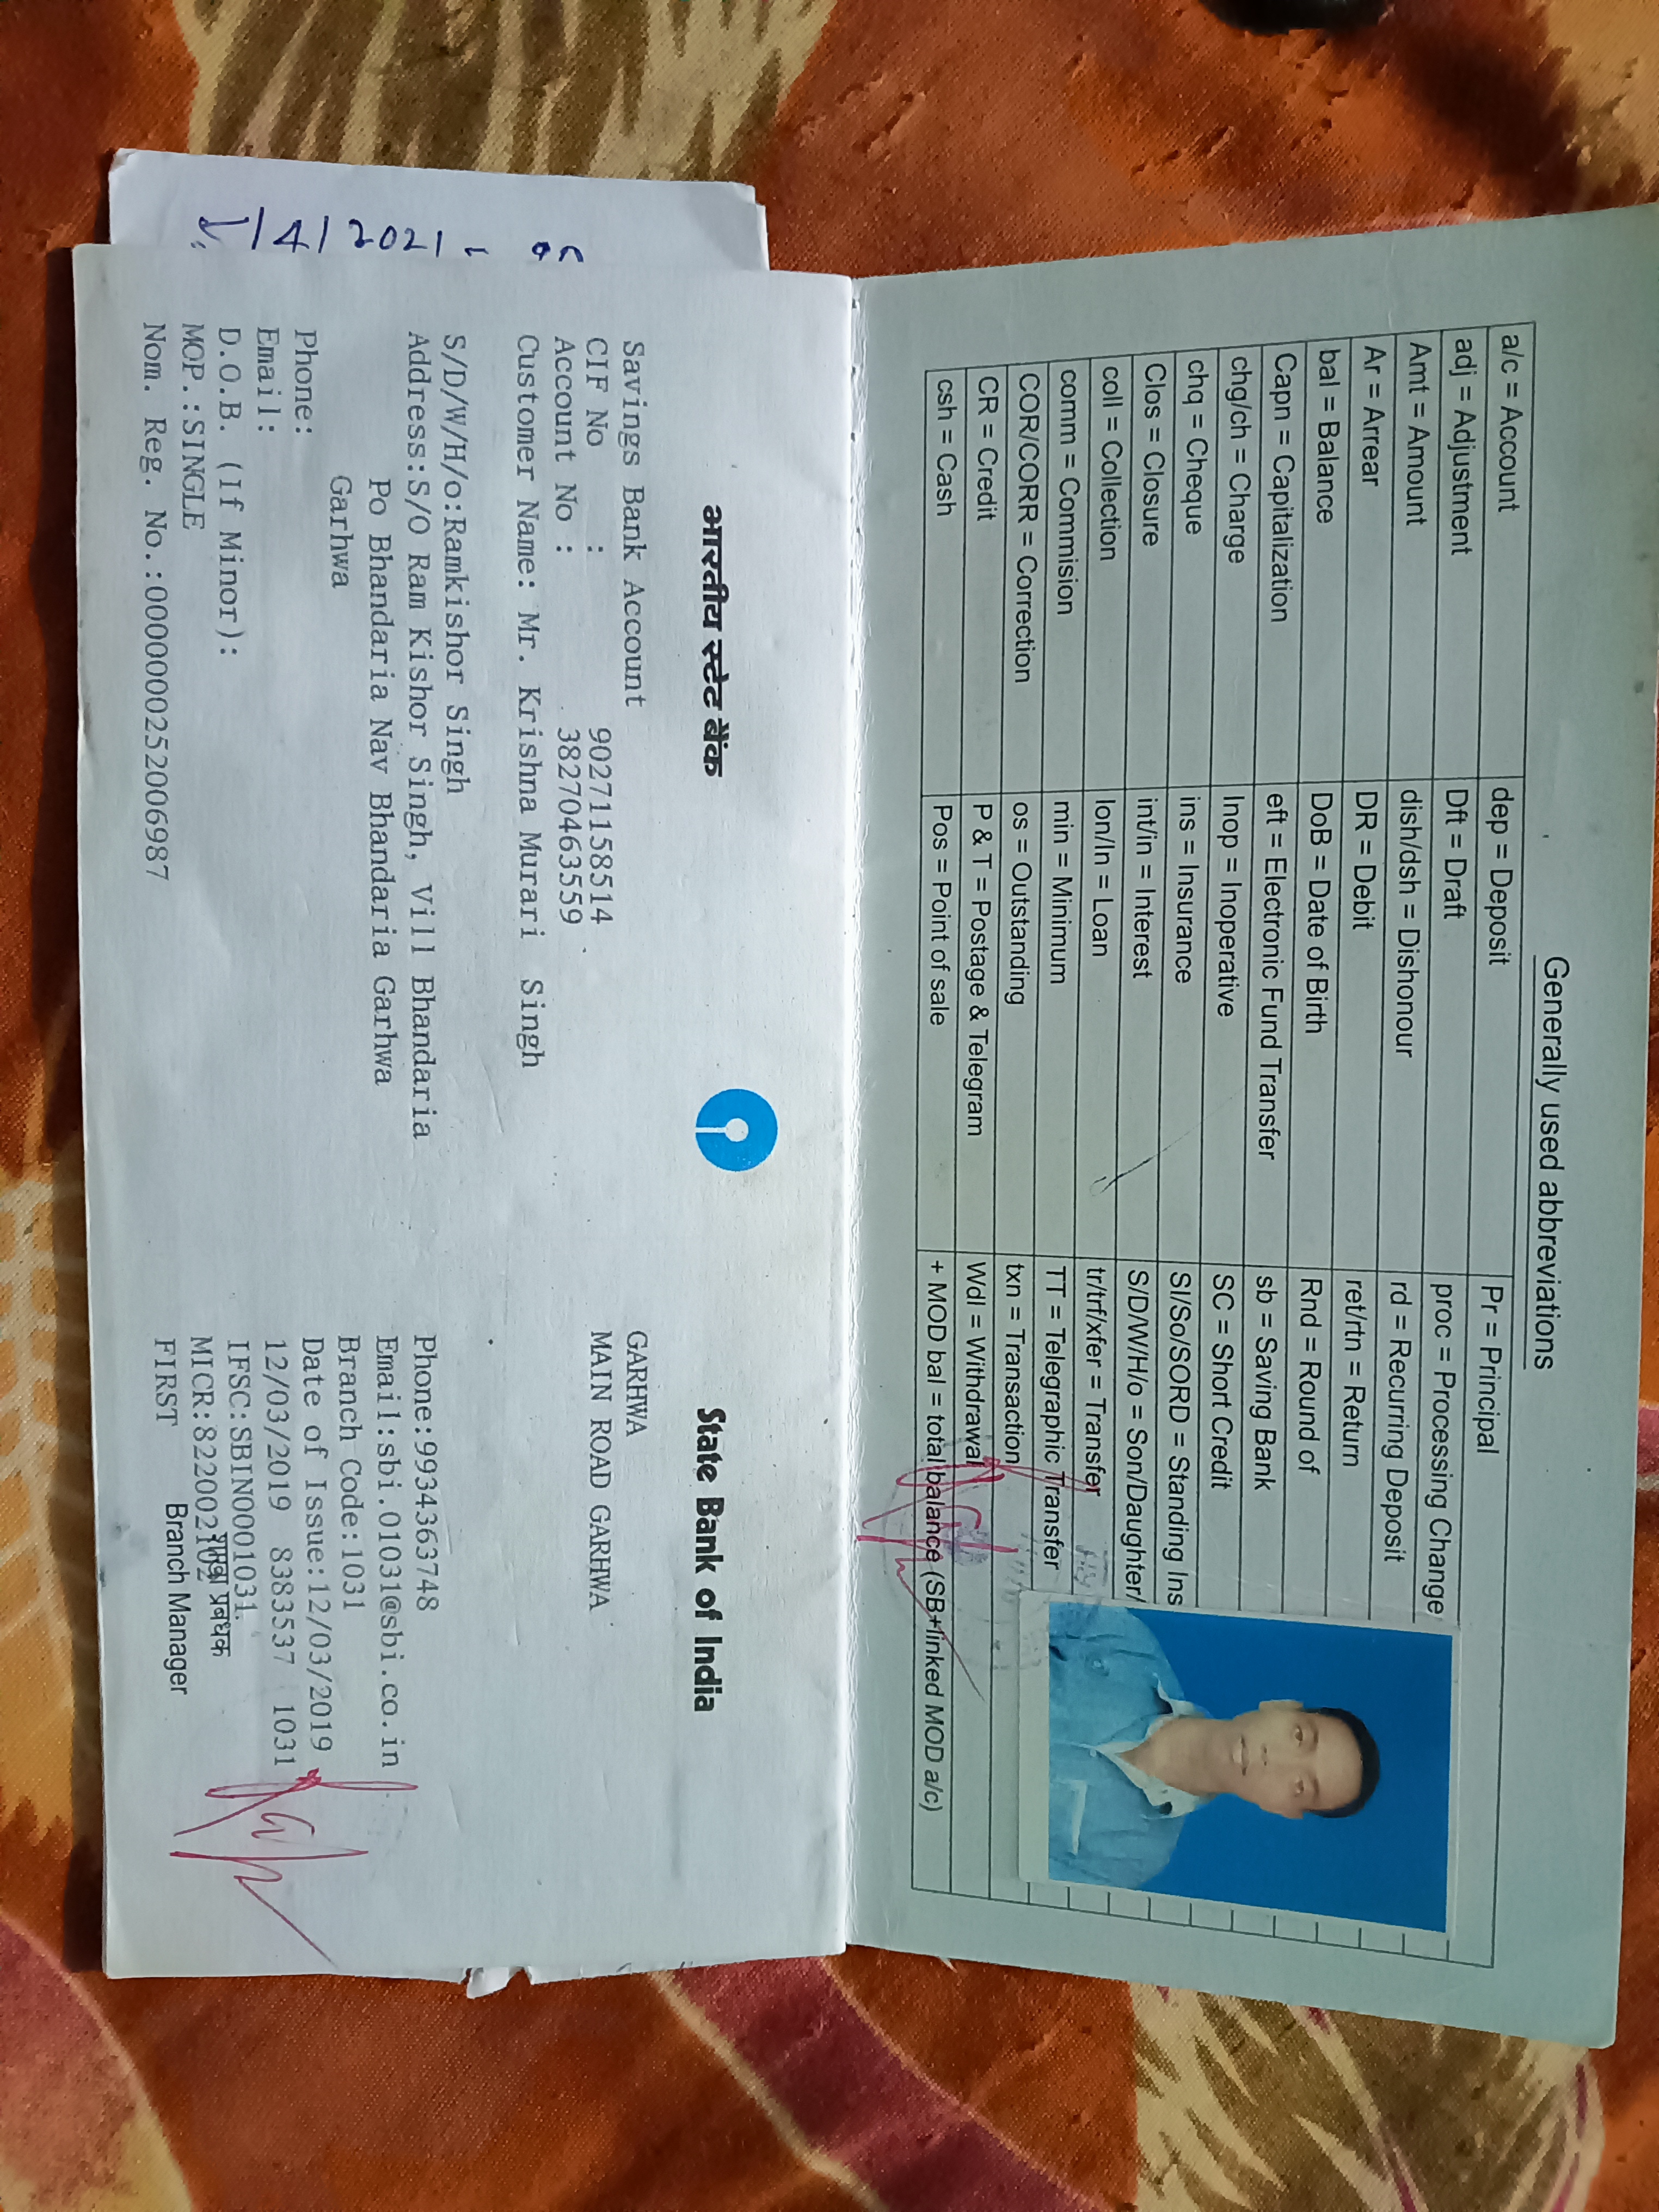 Generally used abbreviations
a/c = Account dep = Deposit Pr = Principal
adj = Adjustment Dft = Draft proc = Processing Change
Amt = Amount dish/dsh = Dishonour rd = Recurring Deposit
Ar = Arrear DR = Debit ret/rtn = Return
bal = Balance DoB = Date of Birth Rnd = Round of
Capn = Capitalization eft = Electronic Fund Transfer sb = Saving Bank
chg/ch = Charge Inop = Inoperative SC = Short Credit
chq = Cheque ins = Insurance SI/So/SORD = Standing Ins
Clos = Closure int/in = Interest S/D/W/H/o = Son/Daughter/
coll = Collection lon/ln = Loan tr/trf/xfer = Transfer
comm = Commision min = Minimum TT = Telegraphic Transfer
COR/CORR = Correction os = Outstanding txn = Transaction
CR = Credit P & T = Postage & Telegram Wdl = Withdrawal
csh = Cash Pos = Point of sale + MOD bal = total balance (SB+linked MOD a/c)
भारतीय स्टेट बैंक State Bank of India
Savings Bank Account GARHWA
CIF No : 90271158514 MAIN ROAD GARHWA
Account No : 38270463559
Customer Name: Mr. Krishna Murari Singh
S/D/W/H/o:Ramkishor Singh Phone:9934363748
Address:S/O Ram Kishor Singh, Vill Bhandaria Email:sbi.01031@sbi.co.in
Po Bhandaria Nav Bhandaria Garhwa Branch Code:1031
Garhwa Date of Issue:12/03/2019
Phone: 12/03/2019 8383537 1031
Email: IFSC:SBIN0001031
D.O.B. (If Minor): MICR:822002102
MOP.:SINGLE FIRST
शाखा प्रबंधक
Nom. Reg. No.:0000000252006987 Branch Manager
/4/2021